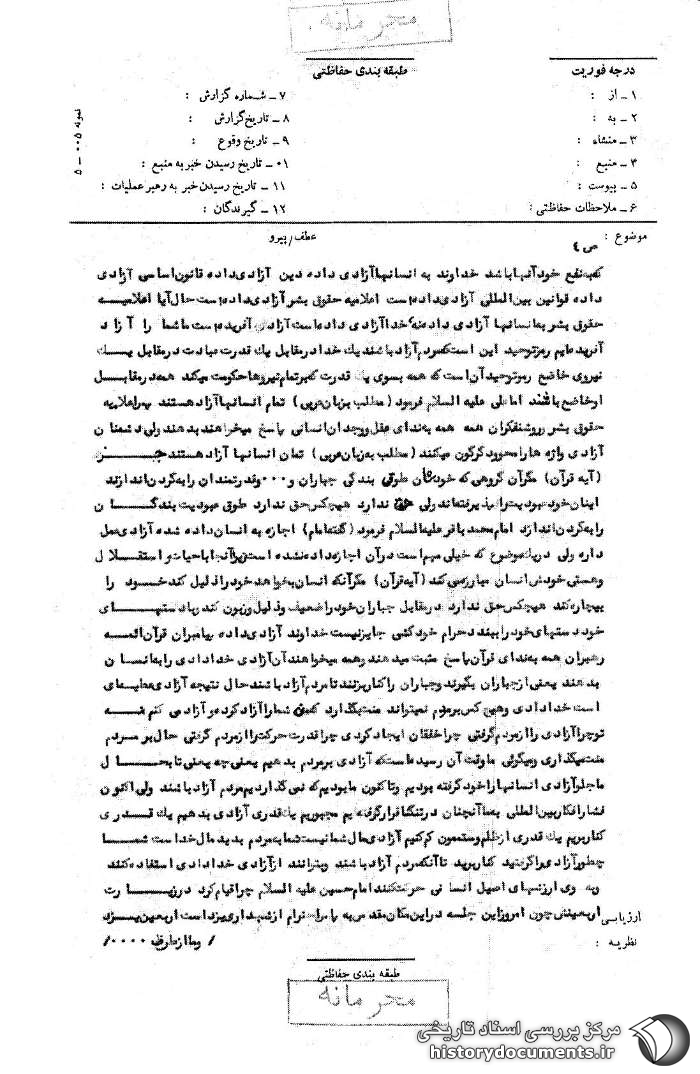 محرمانه
درجه فوریت
طبقه بندی حفاظتی
۱ـ از :
۷ـ شماره گزارش :
۲ـ به :
۸ـ تاریخ گزارش :
۳ـ منشاء :
۹ـ تاریخ وقوع :
۴ـ منبع :
۱۰ـ تاریخ رسیدن خبر به منبع :
۵ـ پیوست :
۱۱ـ تاریخ رسیدن خبر به رهبر عملیات :
۶ـ ملاحظات حفاظتی :
۱۲ـ گیرندگان :
نمونه ۰۰۵ ـ ۵
موضوع :
عطف/پیرو
ص ٤
که به نفع خود آنها باشد خداوند به انسانها آزادی داده دین آزادی داده قانون اساسی آزادی
داده قوانین بین المللی آزادی داده است اعلامیه حقوق بشر آزادی داده است حال آیا اعلامیه
حقوق بشر به انسانها آزادی داده نه خدا آزادی داده است آزادی آفریده است ما شما را آزاد
آفریده ایم رمز توحید این است که مردم آزاد باشند یک خدا در مقابل یک قدرت عبادت در مقابل یک
نیروی خاضع رمز توحید آن است که همه بسوی یک قدرت که بر تمام نیروها حکومت میکند همه در مقابل
او خاضع باشند امام علی علیه السلام فرمود (مطلب بزبان عربی) تمام انسانها آزاد هستند اعلامیه
حقوق بشر روشنفکران همه همه به ندای عقل و وجدان انسانی پاسخ میخواهند بدهند ولی دشمنان
آزادی واژه ها را دگرگون میکنند (مطلب به زبان عربی) تمام انسانها آزاد هستند جز
(آیه قرآن) مگر آن گروهی که خودشان طوق بندگی جباران و ۰۰۰ و قدرتمندان را به گردن اندازند
اینان خود عبودیت را پذیرفته اند ولی حق ندارد هیچکس حق ندارد طوق عبودیت بندگان
را به گردن اندازد امام محمد باقر علیه السلام فرمود (گفته امام) اجازه به انسان داده شده آزادی عمل
داره ولی در یک موضوع که خیلی مهم است در آن اجازه داده نشده است زیرا آنجا با حیات و استقلال
و هستی خودش انسان مبارزه می کند (آیه قرآن) مگر آنکه انسان بخواهد خود را ذلیل کند خود را
بیچاره کند هیچکس حق ندارد در مقابل جباران خود را ضعیف و ذلیل و زبون کند دستهای
خود دستهای خود را ببندد حرام خودکشی جایز نیست خداوند آزادی داده پیامبران قرآن ائمه
رهبران همه به ندای قرآن پاسخ مثبت میدهند و همه میخواهند آن آزادی خدادادی را به انسان
بدهند یعنی از جباران بگیرند و جباران را کنار بزنند تا مردم آزاد باشند حال نتیجه آزادی عطیه ای
است خدادادی و هیچ کس بر مردم نمیتواند منت بگذارد که من شما را آزاد کرده و آزاد می کنم نه
تو چرا آزادی را از مردم گرفتی چرا خفقان ایجاد کردی چرا قدرت حرکت را از مردم گرفتی حال بر مردم
منت میگذاری و میگوئی ما وقت آن رسیده است که آزادی بر مردم بدهیم یعنی چه یعنی تا بحال
ما جلو آزادی انسانها را خود گرفته بودیم و تا کنون ما بودیم که نمی گذاردیم مردم آزاد باشند ولی اکنون
فشار افکار بین المللی بما آنچنان در تنگنا قرار گرفته ایم مجبوریم یک قدری آزادی بدهیم یک قدری
کنار برویم یک قدری از ظلم و ستممون کم کنیم آزادی مال شما نیست شما به مردم بدید مال خداست شما
چطور آزادی را گرفتید کنار برید تا آنکه مردم آزاد باشند و بتوانند از آزادی خدادادی استفاده کنند
و به وی ارزشهای اصیل انسانی حرکت کنند امام حسین علیه السلام چرا قیام کرد در زیارت
اربعینش چون امروز این جلسه در این مکان مقدس به احترام از شهدای یزد است اربعین یزد
/ و ما از طرف ۰۰۰۰/
ارزیابی
نظریه :
طبقه بندی حفاظتی
محرمانه
مرکز بررسی اسناد تاریخی
historydocuments.ir